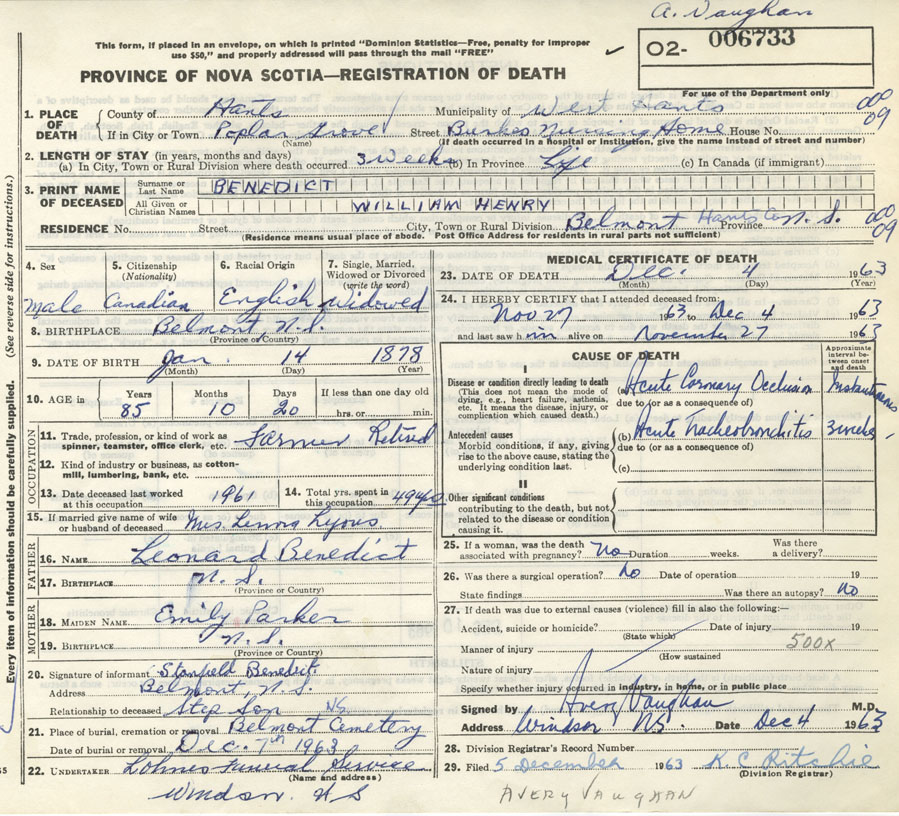 A. Vaughan
This form, if placed in an envelope, on which is printed "Dominion Statistics—Free, penalty for improper
use $50," and properly addressed will pass through the mail "FREE"
✓
O2- 006733
For use of the Department only
PROVINCE OF NOVA SCOTIA—REGISTRATION OF DEATH
1. PLACE OF DEATH
County of Hants Municipality of West Hants 000
If in City or Town Poplar Grove Street Burkes Nursing Home House No. 09
(Name) (If death occurred in a hospital or institution, give the name instead of street and number)
2. LENGTH OF STAY (in years, months and days)
(a) In City, Town or Rural Division where death occurred 3 weeks (b) In Province Life (c) In Canada (if immigrant)
3. PRINT NAME OF DECEASED
Surname or Last Name BENEDICT
All Given or Christian Names WILLIAM HENRY
RESIDENCE No. Street City, Town or Rural Division Belmont Hants Co. Province N. S. 000 09
(Residence means usual place of abode. Post Office Address for residents in rural parts not sufficient)
4. Sex Male
5. Citizenship (Nationality) Canadian
6. Racial Origin English
7. Single, Married, Widowed or Divorced (write the word) Widowed
8. BIRTHPLACE Belmont, N.S.
(Province or Country)
9. DATE OF BIRTH Jan. 14 1878
(Month) (Day) (Year)
10. AGE in Years Months Days If less than one day old
85 10 20 hrs. or min.
OCCUPATION
11. Trade, profession, or kind of work as spinner, teamster, office clerk, etc. Farmer Retired
12. Kind of industry or business, as cotton-mill, lumbering, bank, etc.
13. Date deceased last worked at this occupation 1961
14. Total yrs. spent in this occupation
15. If married give name of wife or husband of deceased Mrs. Lenora Lyons
FATHER
16. NAME Leonard Benedict
17. BIRTHPLACE N. S.
(Province or Country)
MOTHER
18. MAIDEN NAME Emily Parker
19. BIRTHPLACE N. S.
(Province or Country)
20. Signature of informant Stanfield Benedict
Address Belmont, N. S.
Relationship to deceased Step Son NS
21. Place of burial, cremation or removal Belmont Cemetery
Date of burial or removal Dec. 7th 1963
22. UNDERTAKER Lohnes Funeral Service
(Name and address)
Windsor. N S
MEDICAL CERTIFICATE OF DEATH
23. DATE OF DEATH Dec. 4 1963
(Month) (Day) (Year)
24. I HEREBY CERTIFY that I attended deceased from:
Nov 27 1963 to Dec 4 1963
and last saw him alive on November 27 1963
CAUSE OF DEATH
Approximate interval between onset and death
I
Disease or condition directly leading to death
(This does not mean the mode of dying, e.g., heart failure, asthenia, etc. It means the disease, injury, or complication which caused death.)
Acute Coronary Occlusion Instantaneous
due to (or as a consequence of)
Antecedent causes
Morbid conditions, if any, giving rise to the above cause, stating the underlying condition last.
(b) Acute Tracheobronchitis 3 weeks
due to (or as a consequence of)
(c)
II
Other significant conditions
contributing to the death, but not related to the disease or condition causing it.
25. If a woman, was the death associated with pregnancy? No Duration weeks. Was there a delivery?
26. Was there a surgical operation? No Date of operation 19
State findings Was there an autopsy? No
27. If death was due to external causes (violence) fill in also the following:—
Accident, suicide or homicide? Date of injury 19
(State which)
Manner of injury 500X
(How sustained)
Nature of injury
Specify whether injury occurred in industry, in home, or in public place
Signed by Avery Vaughan M.D.
Address Windsor NS. Date Dec 4 1963
28. Division Registrar's Record Number
29. Filed 5 December 1963 K C Ritchie
(Division Registrar)
AVERY VAUGHAN
Every item of information should be carefully supplied. (See reverse side for instructions.)